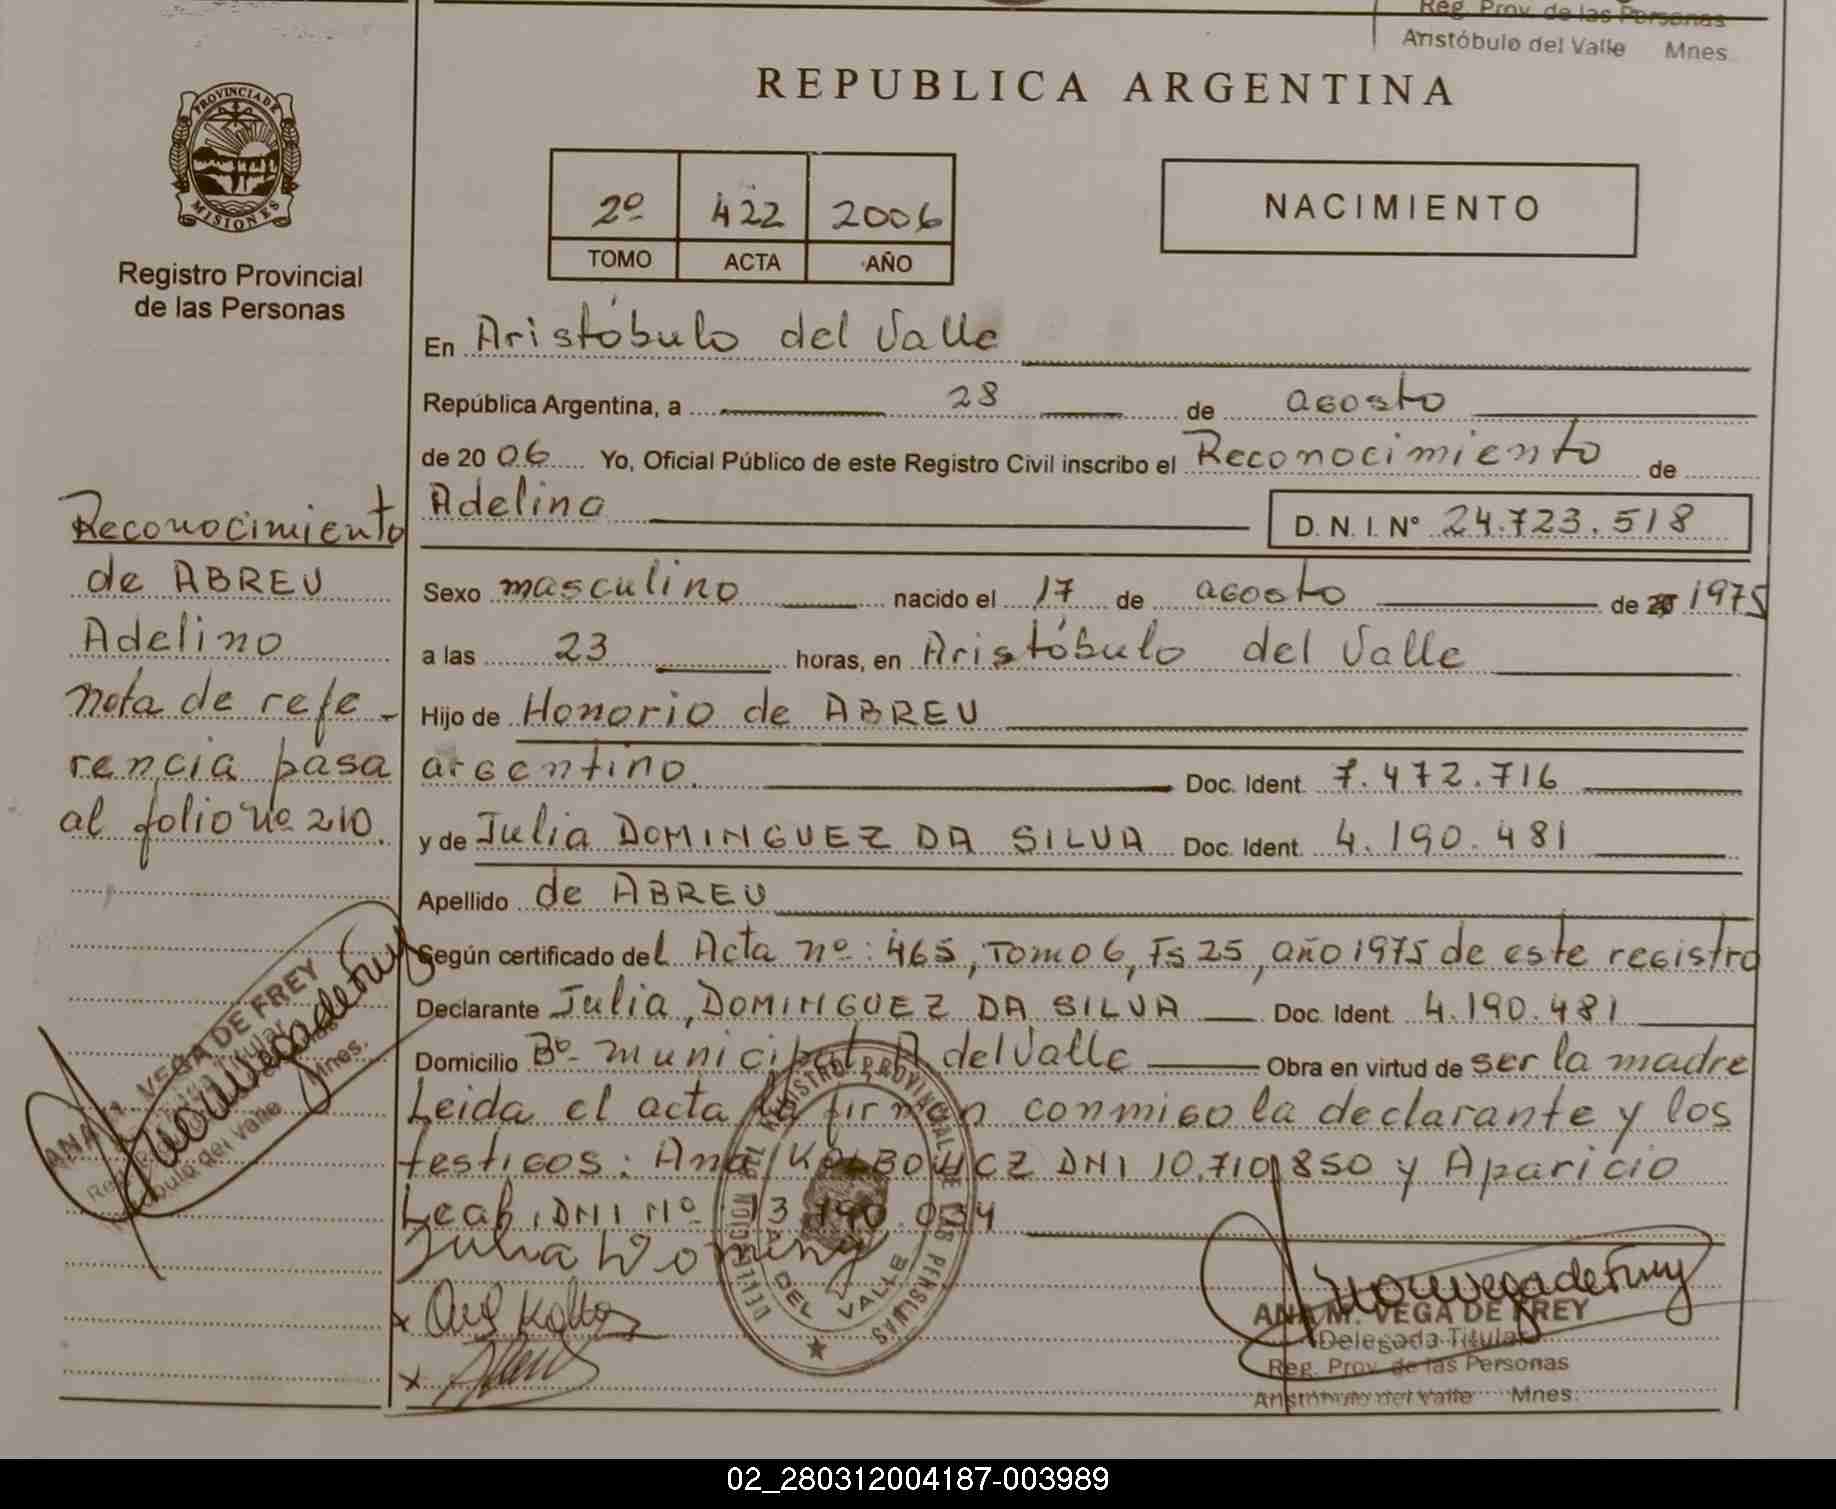 Reg. Prov. de las Personas
Aristóbulo del Valle Mnes.
REPUBLICA ARGENTINA
PROVINCIA DE
MISIONES
Registro Provincial
de las Personas
2º 422 2006
TOMO ACTA AÑO
NACIMIENTO
En Aristóbulo del Valle
República Argentina, a 28 de agosto
de 20 06 Yo, Oficial Público de este Registro Civil inscribo el Reconocimiento de
Adelino
D. N. I. Nº 24.723.518
Sexo masculino nacido el 17 de agosto de 1975
a las 23 horas, en Aristóbulo del Valle
Hijo de Honorio de ABREU
argentino. Doc. Ident. 7.472.716
y de Julia DOMINGUEZ DA SILVA Doc. Ident. 4.190.481
Apellido de ABREU
Según certificado del Acta nº: 465, Tomo 6, Fs 25, año 1975 de este registro
Declarante Julia, DOMINGUEZ DA SILVA Doc. Ident. 4.190.481
Domicilio Bº Municipal A del Valle Obra en virtud de ser la madre
Leida el acta la firman conmigo la declarante y los
testigos: Ana KOLBOWICZ DNI 10.710.850 y Aparicio
Leal, DNI Nº 13.790.034
Julia Doming
Ana Kolbo
Reconocimiento
de ABREU
Adelino
nota de refe-
rencia pasa
al folio nº 210.
ANA M. VEGA DE FREY
Delegada Titular
Reg. Prov. de las Personas
Aristóbulo del Valle Mnes.
REGISTRO PROVINCIAL DE LAS PERSONAS
DELEGACION
DEL VALLE
ANA M. VEGA DE FREY
Delegada Titular
Reg. Prov. de las Personas
Aristóbulo del Valle Mnes.
02_280312004187-003989